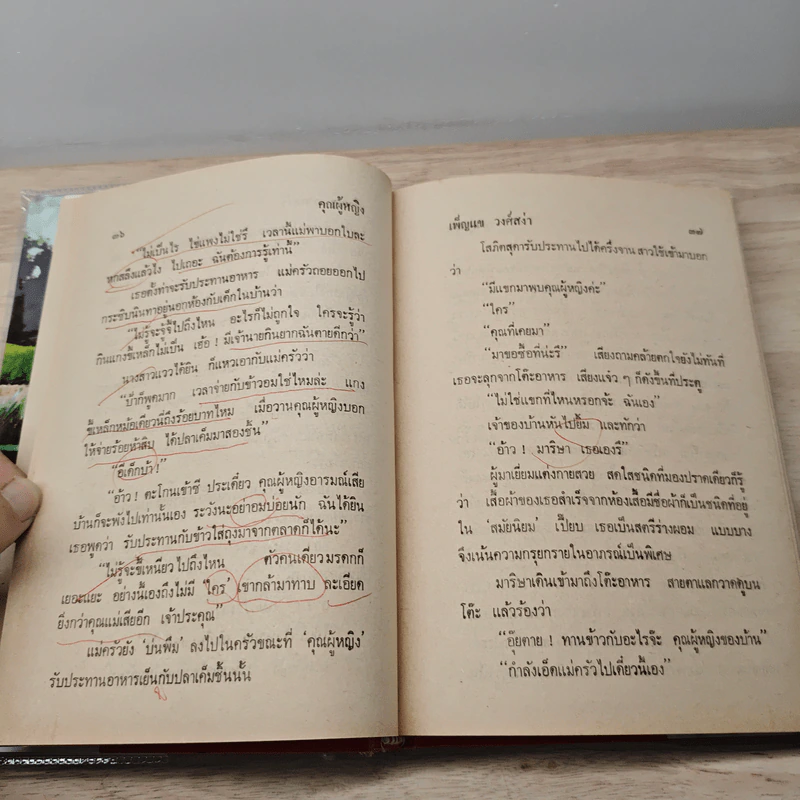 ๓๖
คุณผู้หญิง
"ไม่เป็นไร ใช่แพงไม่ใช่รึ เวลานี้แม่พาบอกใบละ
หกสลึงแล้วไง ไปเถอะ ฉันต้องการรู้เท่านี้"
เธอตั้งท่าจะรับประทานอาหาร แม่ครัวถอยออกไป
กระซิบนินทาอยู่นอกห้องกับเด็กในบ้านว่า
"ไม่รู้จะจู้จี้ไปถึงไหน อะไรก็ไม่ถูกใจ ใครจะรู้ว่า
กินแกงขี้เหล็กไม่เป็น เฮ้อ ! มีเจ้านายกินยากฉันตายดีกว่า"
นางสาวแววได้ยิน ก็แหวเอากับแม่ครัวว่า
"บ๊ากี้พูดมาก เวลาจ่ายกับข้าวอมใช่ไหมล่ะ แกง
ขี้เหล็กหม้อเดียวนี่ถึงร้อยบาทไหม เมื่อวานคุณผู้หญิงบอก
ให้จ่ายร้อยห้าสิบ ได้ปลาเค็มมาสองชิ้น"
"อีเด็กบ้า!"
"อ้าว ! ตะโกนเข้าซี ประเดี๋ยว คุณผู้หญิงอารมณ์เสีย
บ้านก็จะพังไปเท่านั้นเอง ระวังนะอย่าอมบ่อยนัก ฉันได้ยิน
เธอพูดว่า รับประทานกับข้าวใส่ถุงมาจากตลาดก็ได้นะ"
"ไม่รู้จะขี้เหนียวไปถึงไหน ตัวคนเดียวมรดกก็
เยอะแยะ อย่างนี้เองถึงไม่มี 'ใคร' เขากล้ามาทาบ ละเอียด
ยิ่งกว่าคุณแม่เสียอีก เจ้าประคุณ"
แม่ครัวยัง 'บ่นพึม' ลงไปในครัวขณะที่ 'คุณผู้หญิง'
รับประทานอาหารเย็นกับปลาเค็มชิ้นนั้น
เพ็ญแข วงศ์สง่า
๓๗
โสภิตสุดารับประทานไปได้ครึ่งจาน สาวใช้เข้ามาบอก
ว่า
"มีแขกมาพบคุณผู้หญิงค่ะ"
"ใคร"
"คุณที่เคยมา"
"มาขอซื้อที่น่ะรึ" เสียงถามคล้ายตกใจยังไม่ทันที่
เธอจะลุกจากโต๊ะอาหาร เสียงแจ๋ว ๆ ก็ดังขึ้นที่ประตู
"ไม่ใช่แขกที่ไหนหรอกจ้ะ ฉันเอง"
เจ้าของบ้านหันไปยิ้ม และทักว่า
"อ้าว ! มาริษา เธอเองรึ"
ผู้มาเยี่ยมแต่งกายสวย สดใสชนิดที่มองปราดเดียวก็รู้
ว่า เสื้อผ้าของเธอสำเร็จจากห้องเสื้อมีชื่อผ้าก็เป็นชนิดที่อยู่
ใน 'สมัยนิยม' เปี๊ยบ เธอเป็นสตรีร่างผอม แบบบาง
จึงเน้นความกรุยกรายในอาภรณ์เป็นพิเศษ
มาริษาเดินเข้ามาถึงโต๊ะอาหาร สายตาแลกวาดดูบน
โต๊ะ แล้วร้องว่า
"อุ๊ยตาย ! ทานข้าวกับอะไรจ๊ะ คุณผู้หญิงของบ้าน"
"กำลังเอ็ดแม่ครัวไปเดี๋ยวนี้เอง"